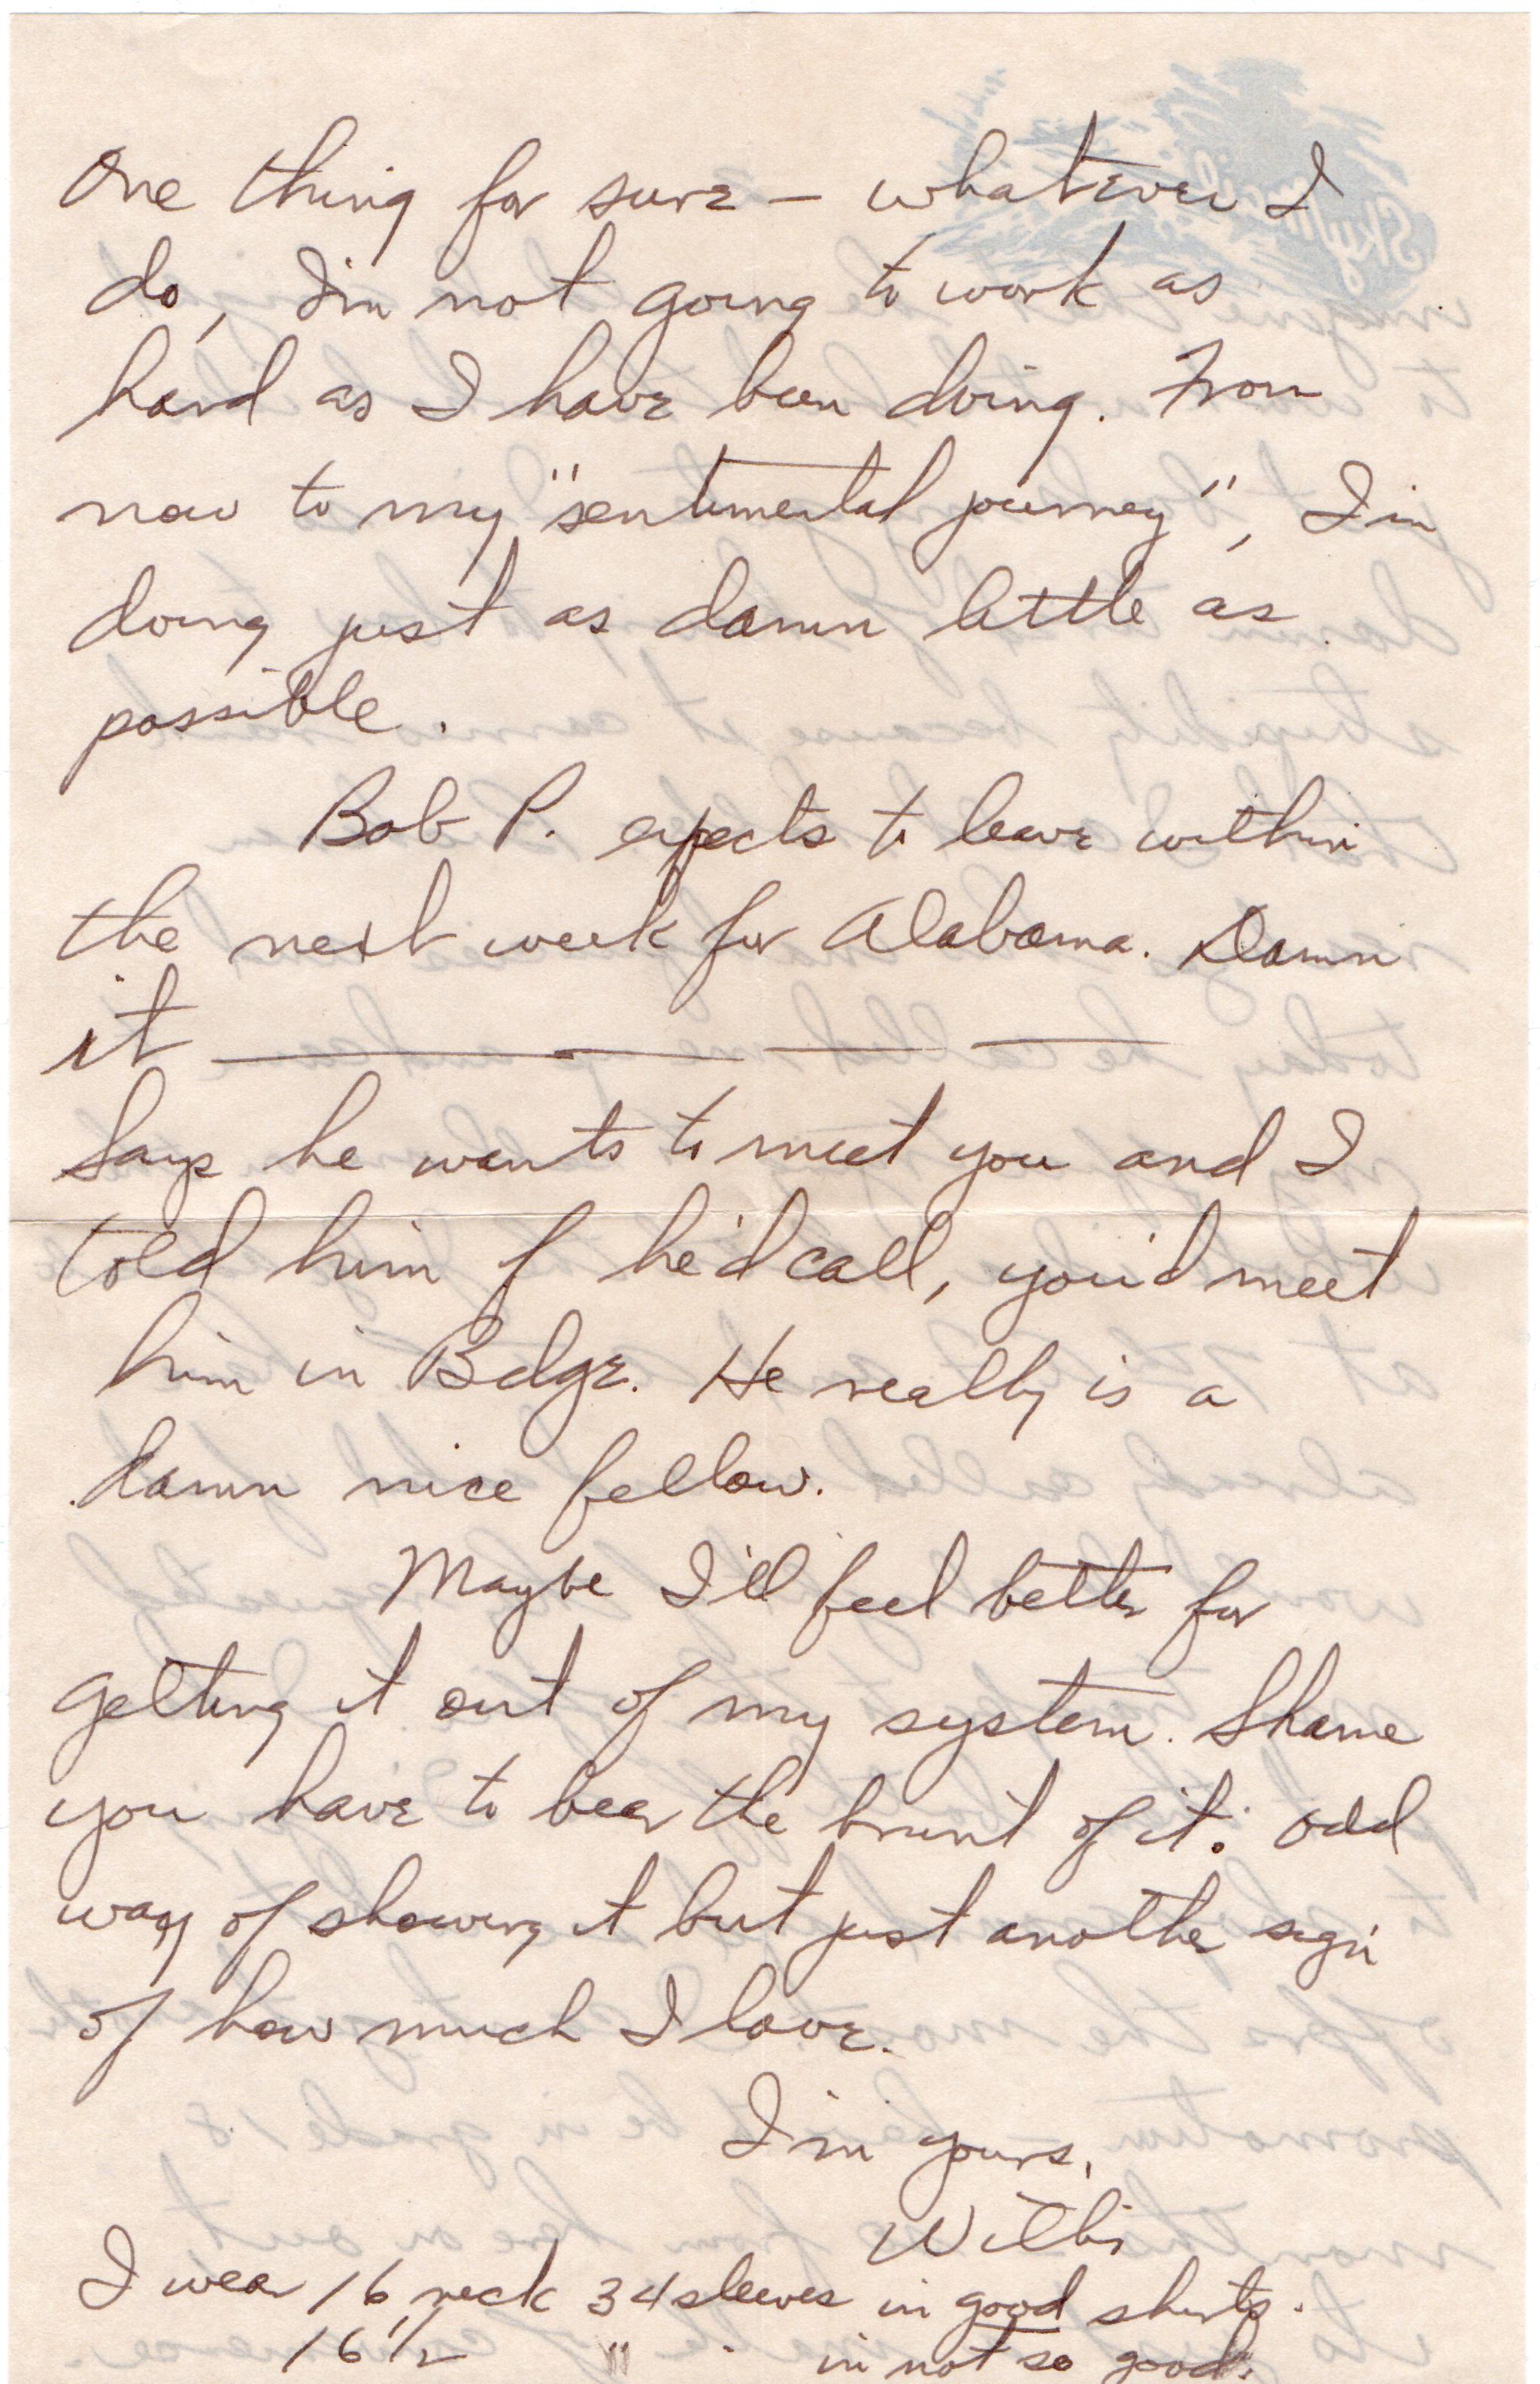 One thing for sure — whatever I
do, I'm not going to work as
hard as I have been doing. From
now to my "sentimental journey", I'm
doing just as damn little as
possible.
Bob P. expects to leave within
the next week for Alabama. Damn
it — — —
Says he wants to meet you and I
told him if he'd call, you'd meet
him in Bdge. He really is a
damn nice fellow.
Maybe I'll feel better for
getting it out of my system. Shame
you have to bear the brunt of it. Odd
way of showing it but just another sign
of how much I love.
I'm yours,
Willis
I wear 16 neck 34 sleeves in good shirts.
16 1/2 " in not so good.
Skymail